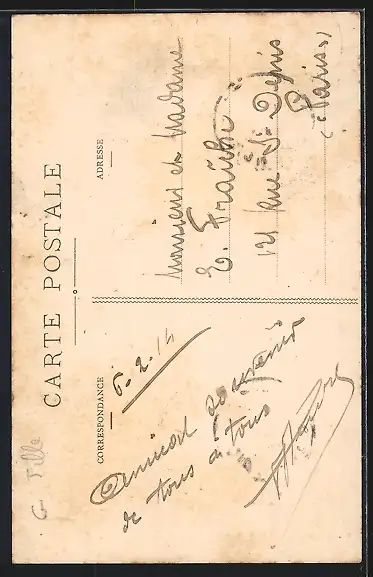 CARTE POSTALE
CORRESPONDANCE
ADRESSE
6-2-14
Amical souvenir
de tous à tous
Monsieur et Madame
E.
121 Rue St Denis
(Paris)
G Ville